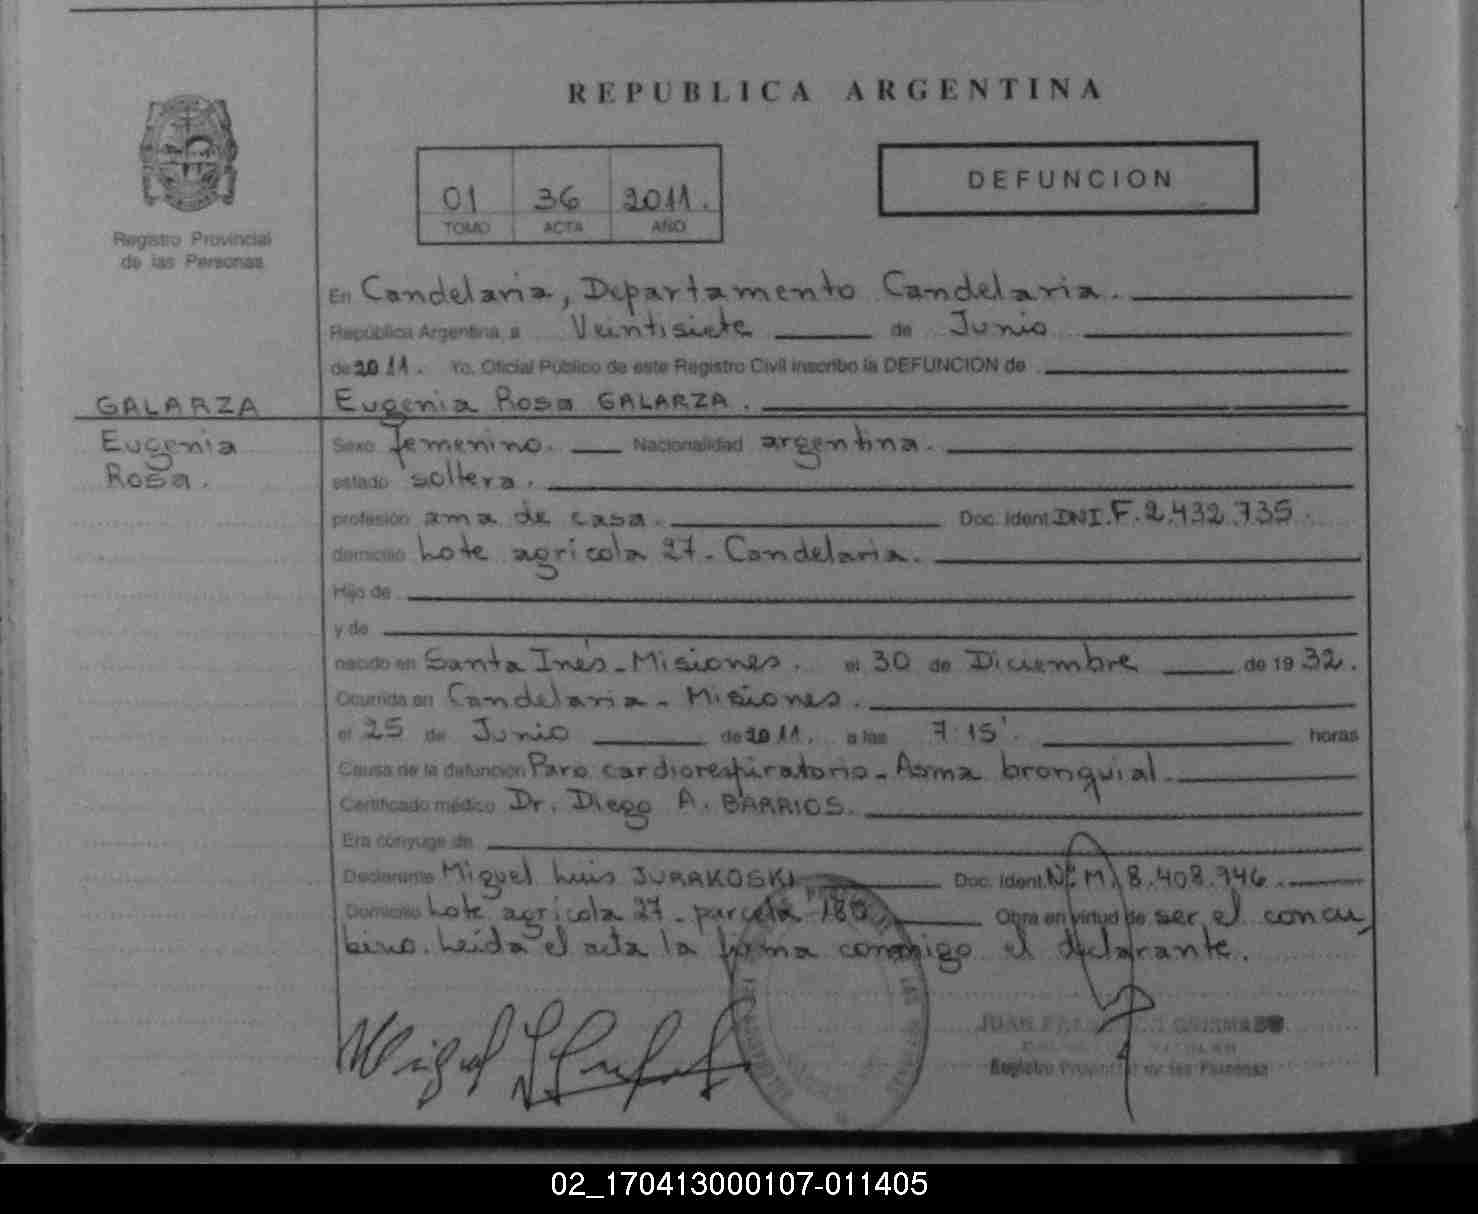 REPUBLICA ARGENTINA
01 36 2011.
TOMO ACTA AÑO
DEFUNCION
Registro Provincial
de las Personas
En Candelaria, Departamento Candelaria.
República Argentina, a Veintisiete de Junio
de 2011. Yo, Oficial Público de este Registro Civil inscribo la DEFUNCION de
GALARZA
Eugenia
Rosa.
Eugenia Rosa GALARZA.
Sexo femenino. Nacionalidad argentina.
estado soltera.
profesión ama de casa. Doc. Ident. DNI. F. 2.432.735.
domicilio Lote agrícola 27. Candelaria.
Hijo de
y de
nacido en Santa Inés - Misiones. el 30 de Diciembre de 19 32.
Ocurrida en Candelaria - Misiones.
el 25 de Junio de 2011. a las 7:15'. horas
Causa de la defunción Paro cardiorespiratorio - Asma bronquial.
Certificado médico Dr. Diego A. BARRIOS.
Era cónyuge de
Declarante Miguel Luis JURAKOSKI Doc. Ident. M. 8.408.946.
Domicilio Lote agrícola 27 - parcela Obra en virtud de ser el concu
bino. Leída el acta la firma conmigo el declarante.
Registro Provincial de las Personas
02_170413000107-011405